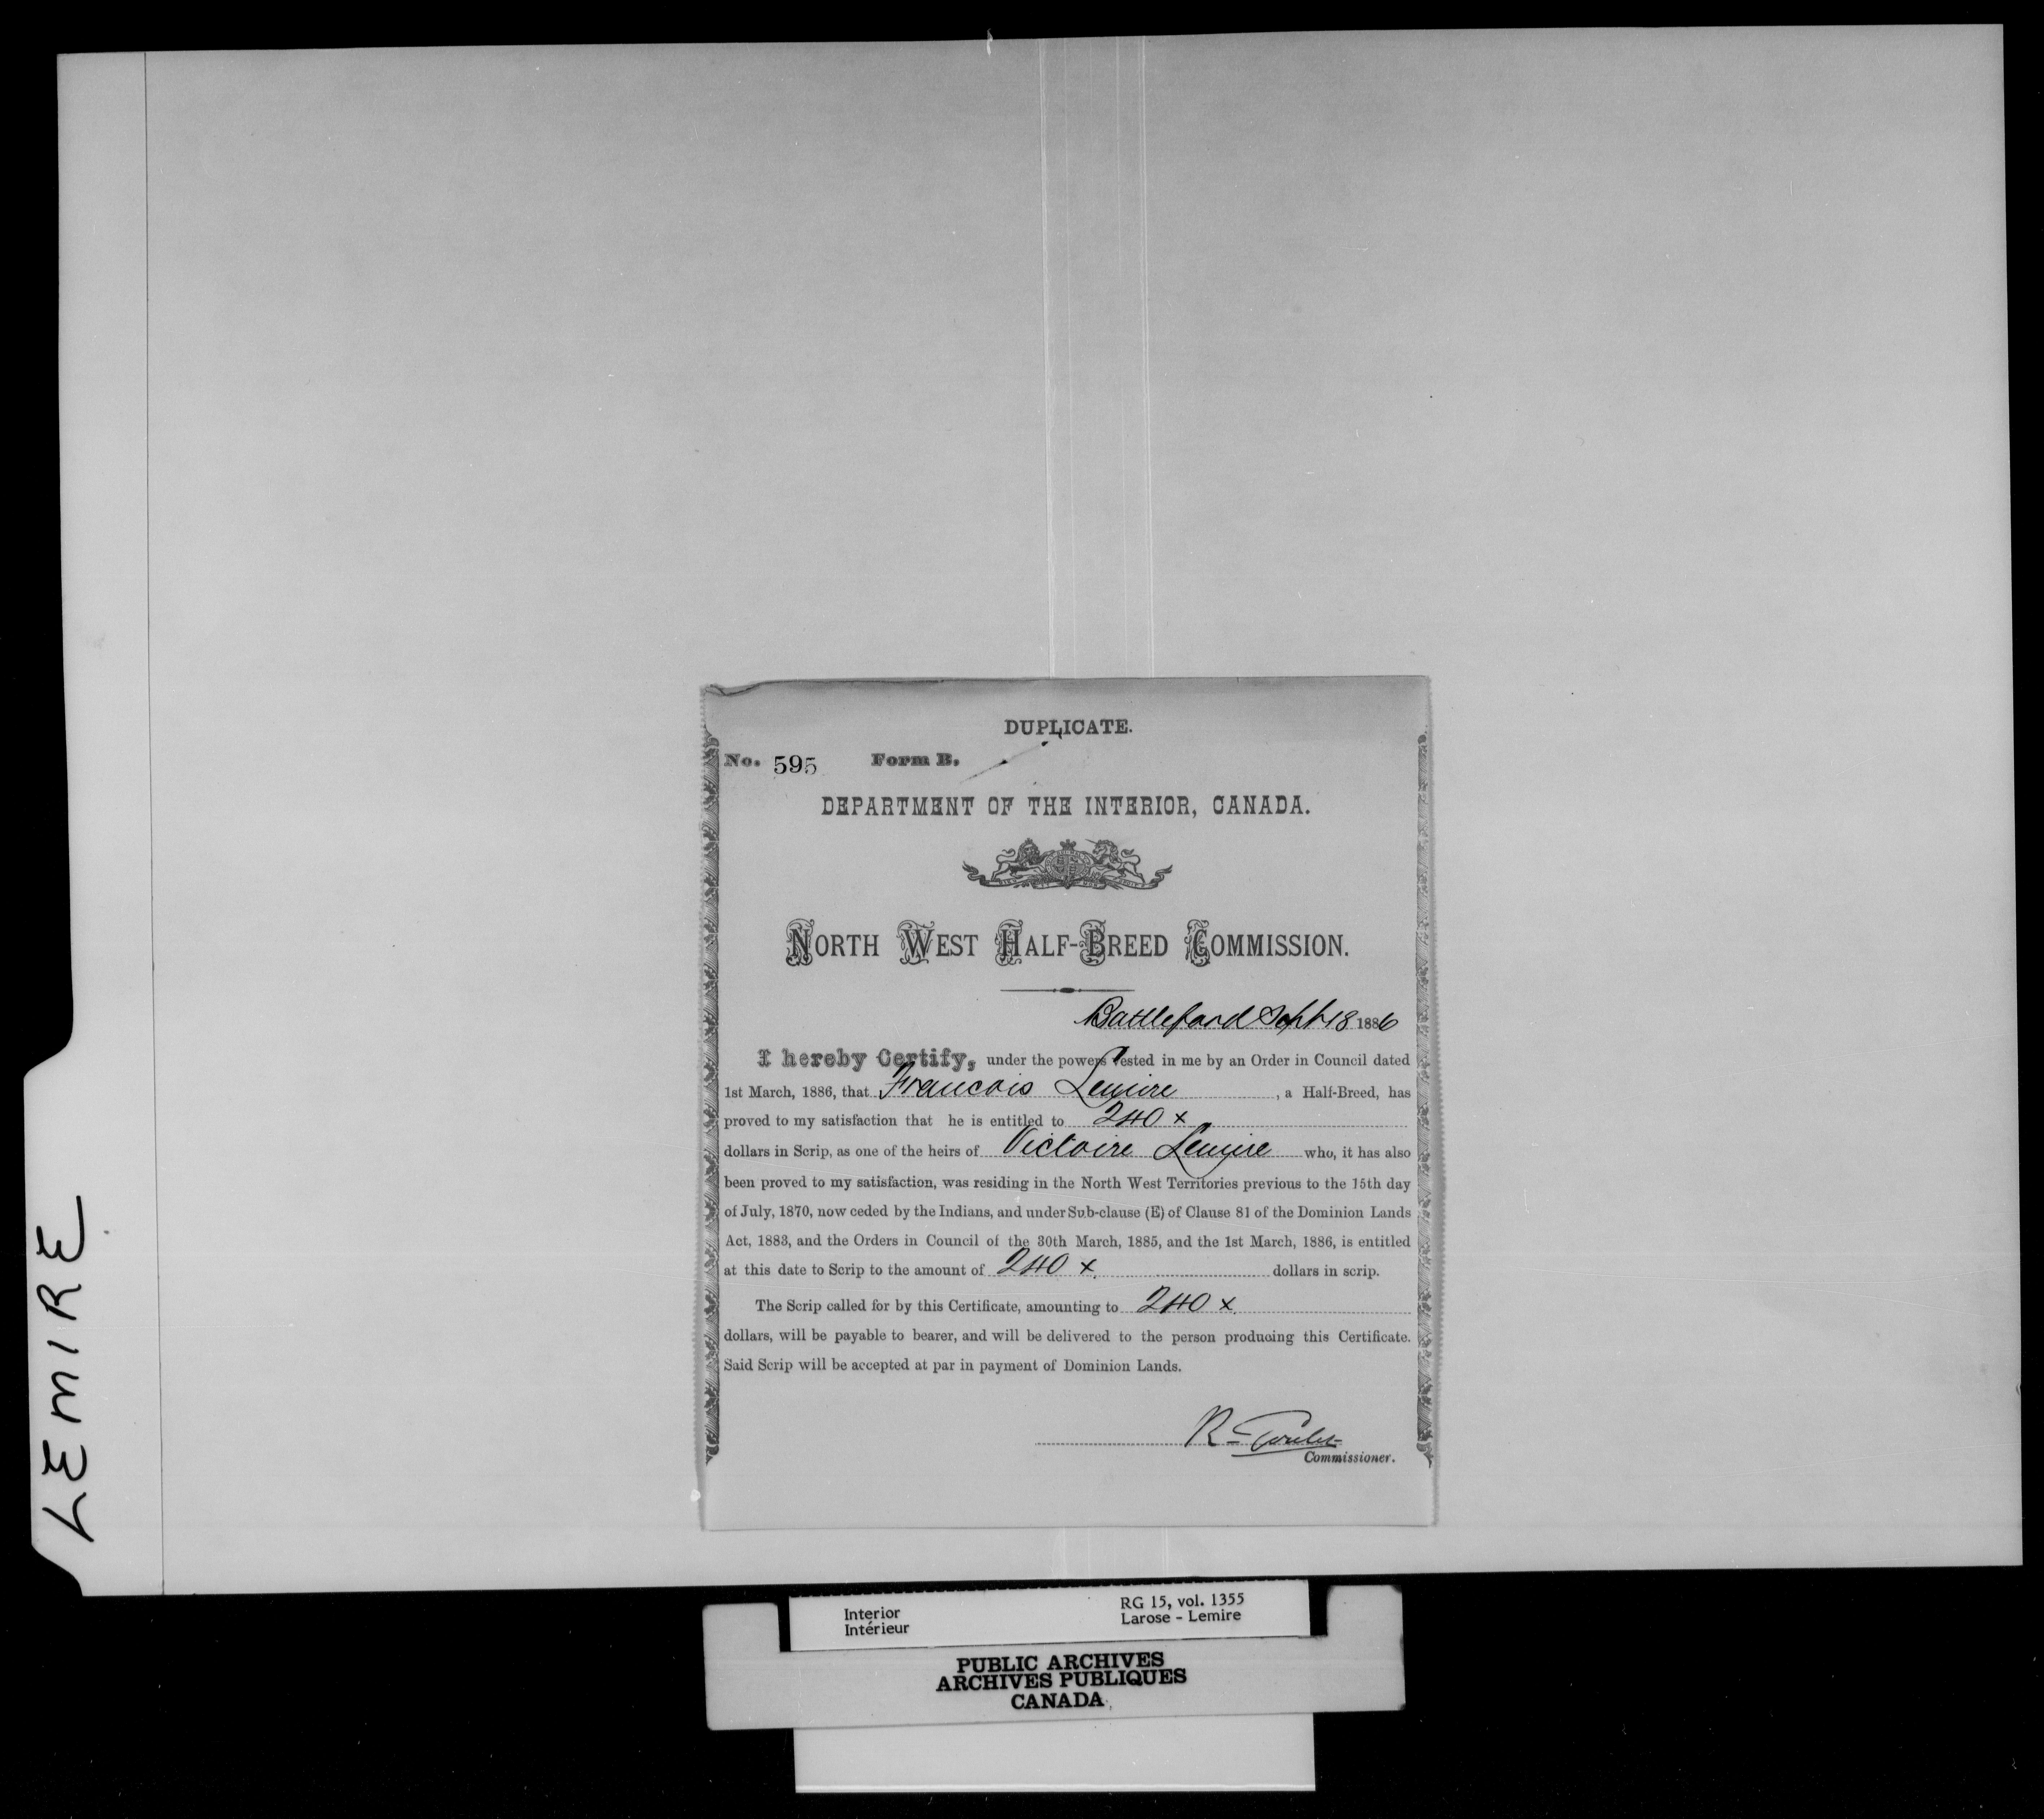 LEMIRE
DUPLICATE.
No. 595 Form B.
DEPARTMENT OF THE INTERIOR, CANADA.
NORTH WEST HALF-BREED COMMISSION.
Battleford Sept 18 1886
I hereby Certify, under the powers vested in me by an Order in Council dated
1st March, 1886, that Francois Lemire, a Half-Breed, has
proved to my satisfaction that he is entitled to 240 x
dollars in Scrip, as one of the heirs of Victoire Lemire who, it has also
been proved to my satisfaction, was residing in the North West Territories previous to the 15th day
of July, 1870, now ceded by the Indians, and under Sub-clause (E) of Clause 81 of the Dominion Lands
Act, 1883, and the Orders in Council of the 30th March, 1885, and the 1st March, 1886, is entitled
at this date to Scrip to the amount of 240 x dollars in scrip.
The Scrip called for by this Certificate, amounting to 240 x
dollars, will be payable to bearer, and will be delivered to the person producing this Certificate.
Said Scrip will be accepted at par in payment of Dominion Lands.
R Goulet
Commissioner.
Interior RG 15, vol. 1355
Intérieur Larose - Lemire
PUBLIC ARCHIVES
ARCHIVES PUBLIQUES
CANADA